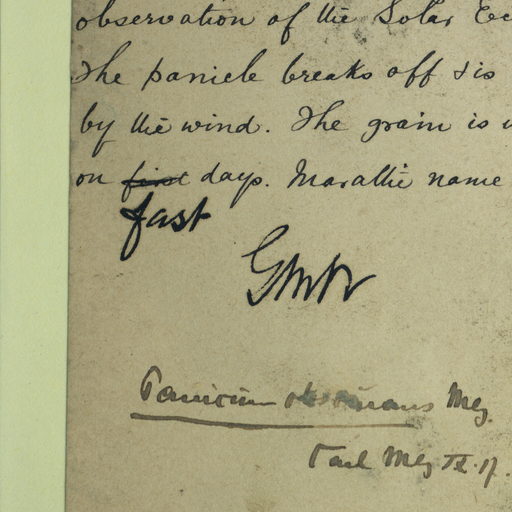 observation of the Solar Ec
The panicle breaks off & is
by the wind. The grain is u
on first days. Marathi name
fast
Panicum